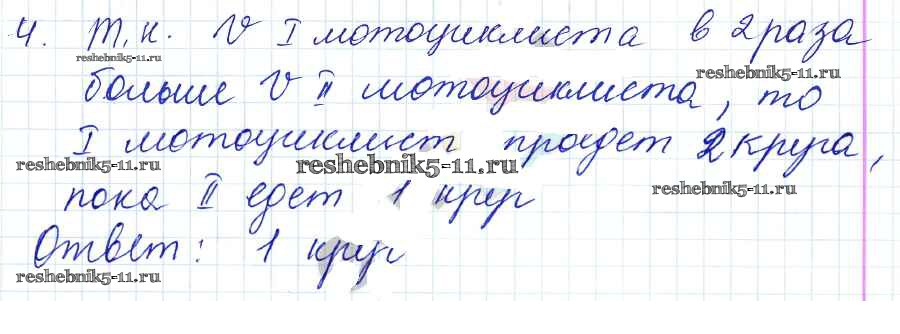 4. Т.к. V I мотоциклиста в 2 раза
reshebnik5-11.ru
reshebnik5-11.ru
больше V II мотоциклиста, то
I мотоциклист проедет 2 круга,
reshebnik5-11.ru
reshebnik5-11.ru
reshebnik5-11.ru
пока II едет 1 круг
Ответ: 1 круг
reshebnik5-11.ru